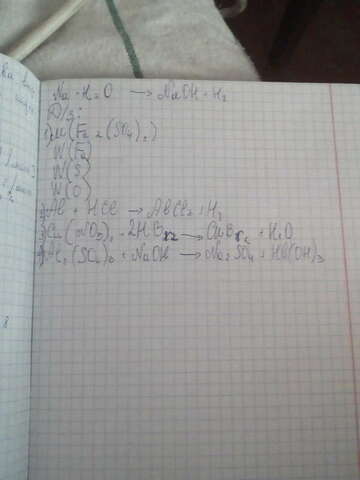 Na + H₂O → NaOH + H₂
Д/з:
1) M(Fe₂(SO₄)₃)
W(Fe)
W(S)
W(O)
2) Al + HCl → AlCl₂ + H₂
3) Cu(NO₃)₂ + 2HBr → CuBr₂ + H₂O
4) Al₂(SO₄)₃ + NaOH → Na₂SO₄ + Al(OH)₃